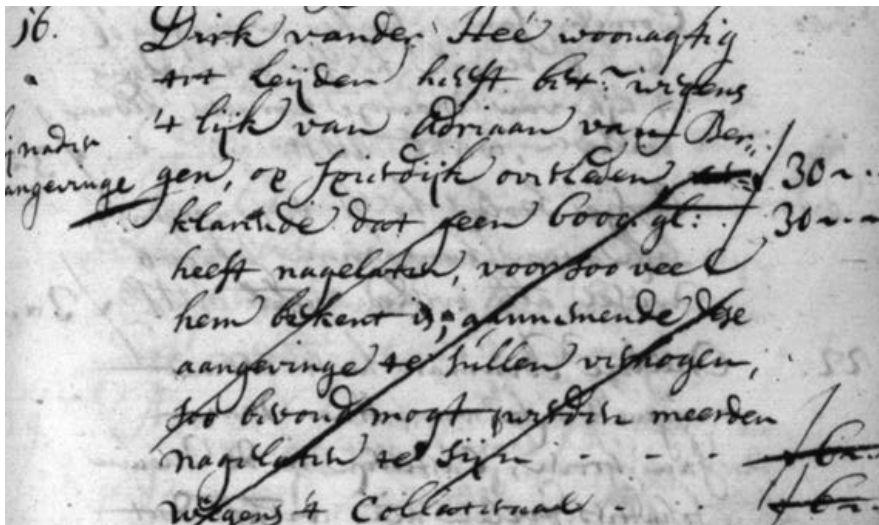 16. Dirk vander Heé woonagtig
tot Leijden heeft bet:n wegens
't lijk van Adriaan van Ber„
nader
aangevinge
gen, op Spietdijk overleden, 30 „ -
klarende dat geen boog. gl: 30 „ - -
heeft nagelaten, voor soo veel
hem bekent is, aannemende dese
aangevinge te sullen verhogen,
soo bevond mogt werden meerder
nagelaten te sijn - - - - 6 „ -
wegens 't Collateraal - . - 6 „ -